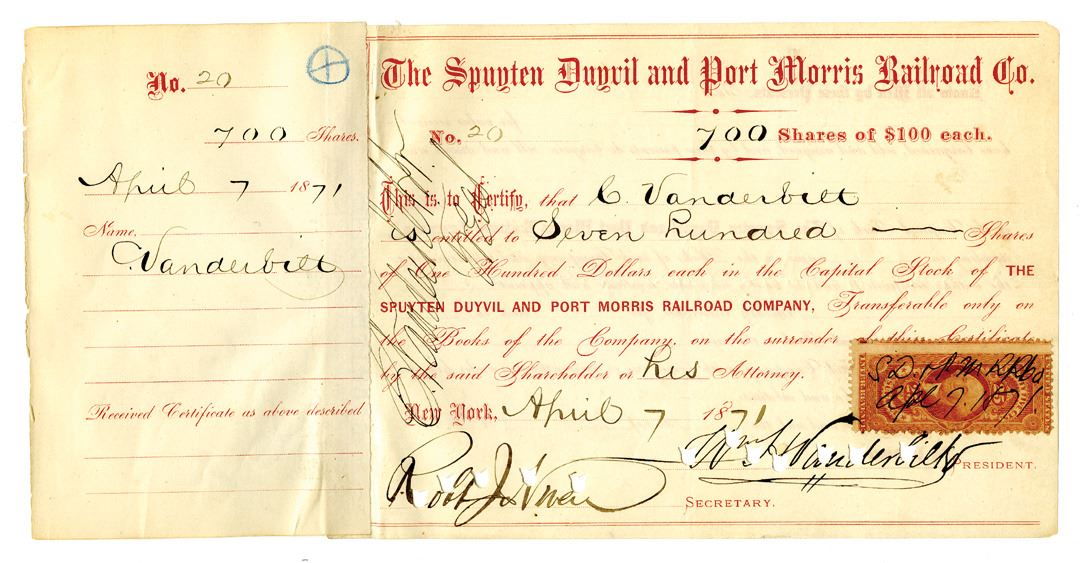 No. 20
700 Shares.
April 7 1871
Name,
C. Vanderbilt
Received Certificate as above described
The Spuyten Duyvil and Port Morris Railroad Co.
No. 20 700 Shares of $100 each.
This is to Certify, that C. Vanderbilt
is entitled to Seven hundred Shares
of One Hundred Dollars each in the Capital Stock of THE
SPUYTEN DUYVIL AND PORT MORRIS RAILROAD COMPANY, Transferable only on
the Books of the Company, on the surrender of this Certificate
by the said Shareholder or his Attorney.
New York, April 7 1871
Wm H Vanderbilt PRESIDENT.
SECRETARY.